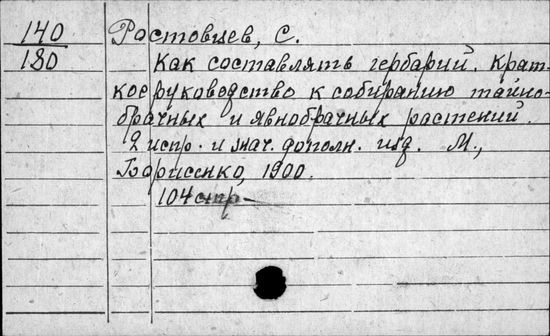 140 Ростовцев, С.
180 Как составлять гербарий. Крат-
кое руководство к собиранию тайно-
брачных и явнобрачных растений.
2 испр. и знач. дополн. изд. М.,
Борисенко, 1900.
104 стр.